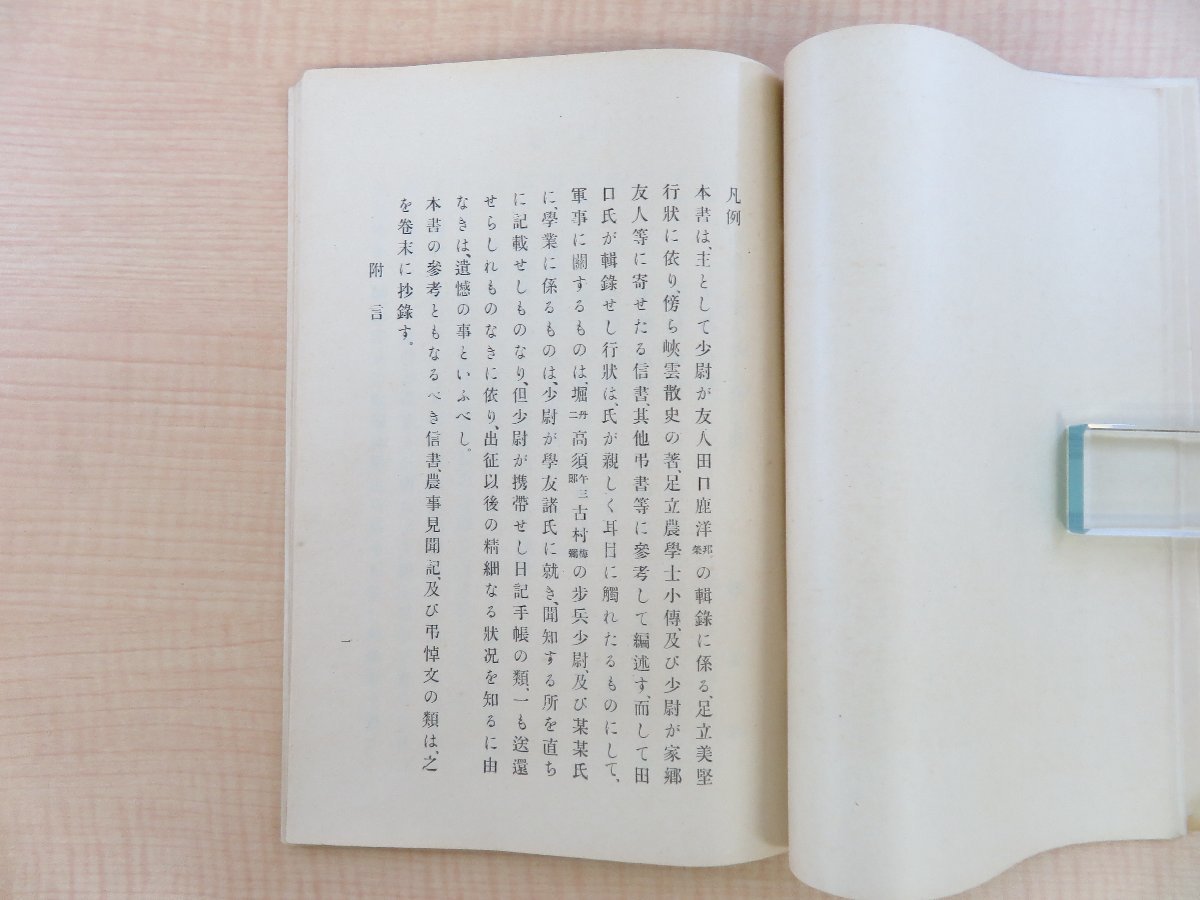 凡例
本書は、主として少尉が友人田口鹿洋邦榮の輯錄に係る、足立美堅
行狀に依り、傍ら峽雲散史の著、足立農學士小傳、及び少尉が家鄕
友人等に寄せたる信書、其他弔書等に參考して編述す、而して田
口氏が輯錄せし行狀は、氏が親しく耳目に觸れたるものにして、
軍事に關するものは、堀丹二高須午三郎古村梅鄕の步兵少尉、及び某某氏
に、學業に係るものは、少尉が學友諸氏に就き、聞知する所を直ち
に記載せしものなり、但少尉が携帶せし日記手帳の類、一も送還
せらしれものなきに依り、出征以後の精細なる狀況を知るに由
なきは、遺憾の事といふべし。
本書の參考ともなるべき信書、農事見聞記、及び弔悼文の類は、之
を卷末に抄錄す。
附言
一